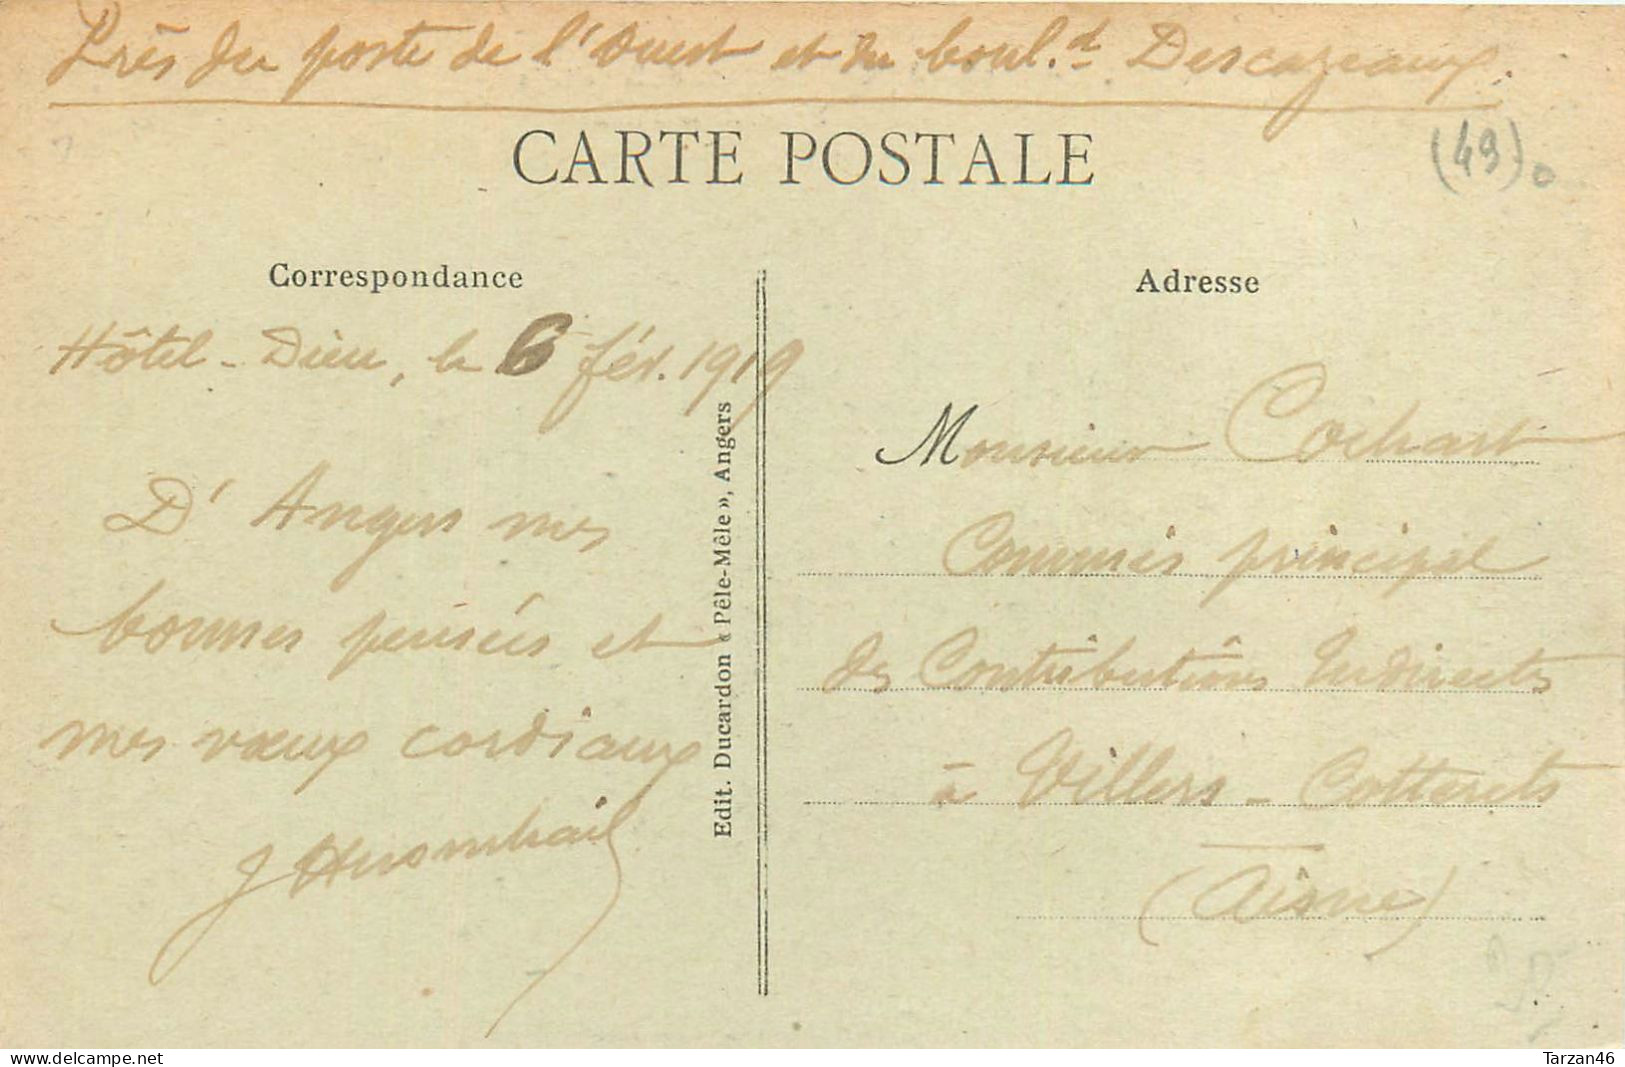 Près du poste de l'Ouest et du boul.d Descazeaux.
CARTE POSTALE
(49)
Correspondance
Hôtel-Dieu, le 6 fév. 1919
D'Angers mes
bonnes pensées et
mes vœux cordiaux
J
Edit. Ducardon « Pêle-Mêle », Angers
Adresse
Monsieur Cochart
Commis principal
des Contributions Indirectes
à Villers-Cotterets
(Aisne)
www.delcampe.net
Tarzan46